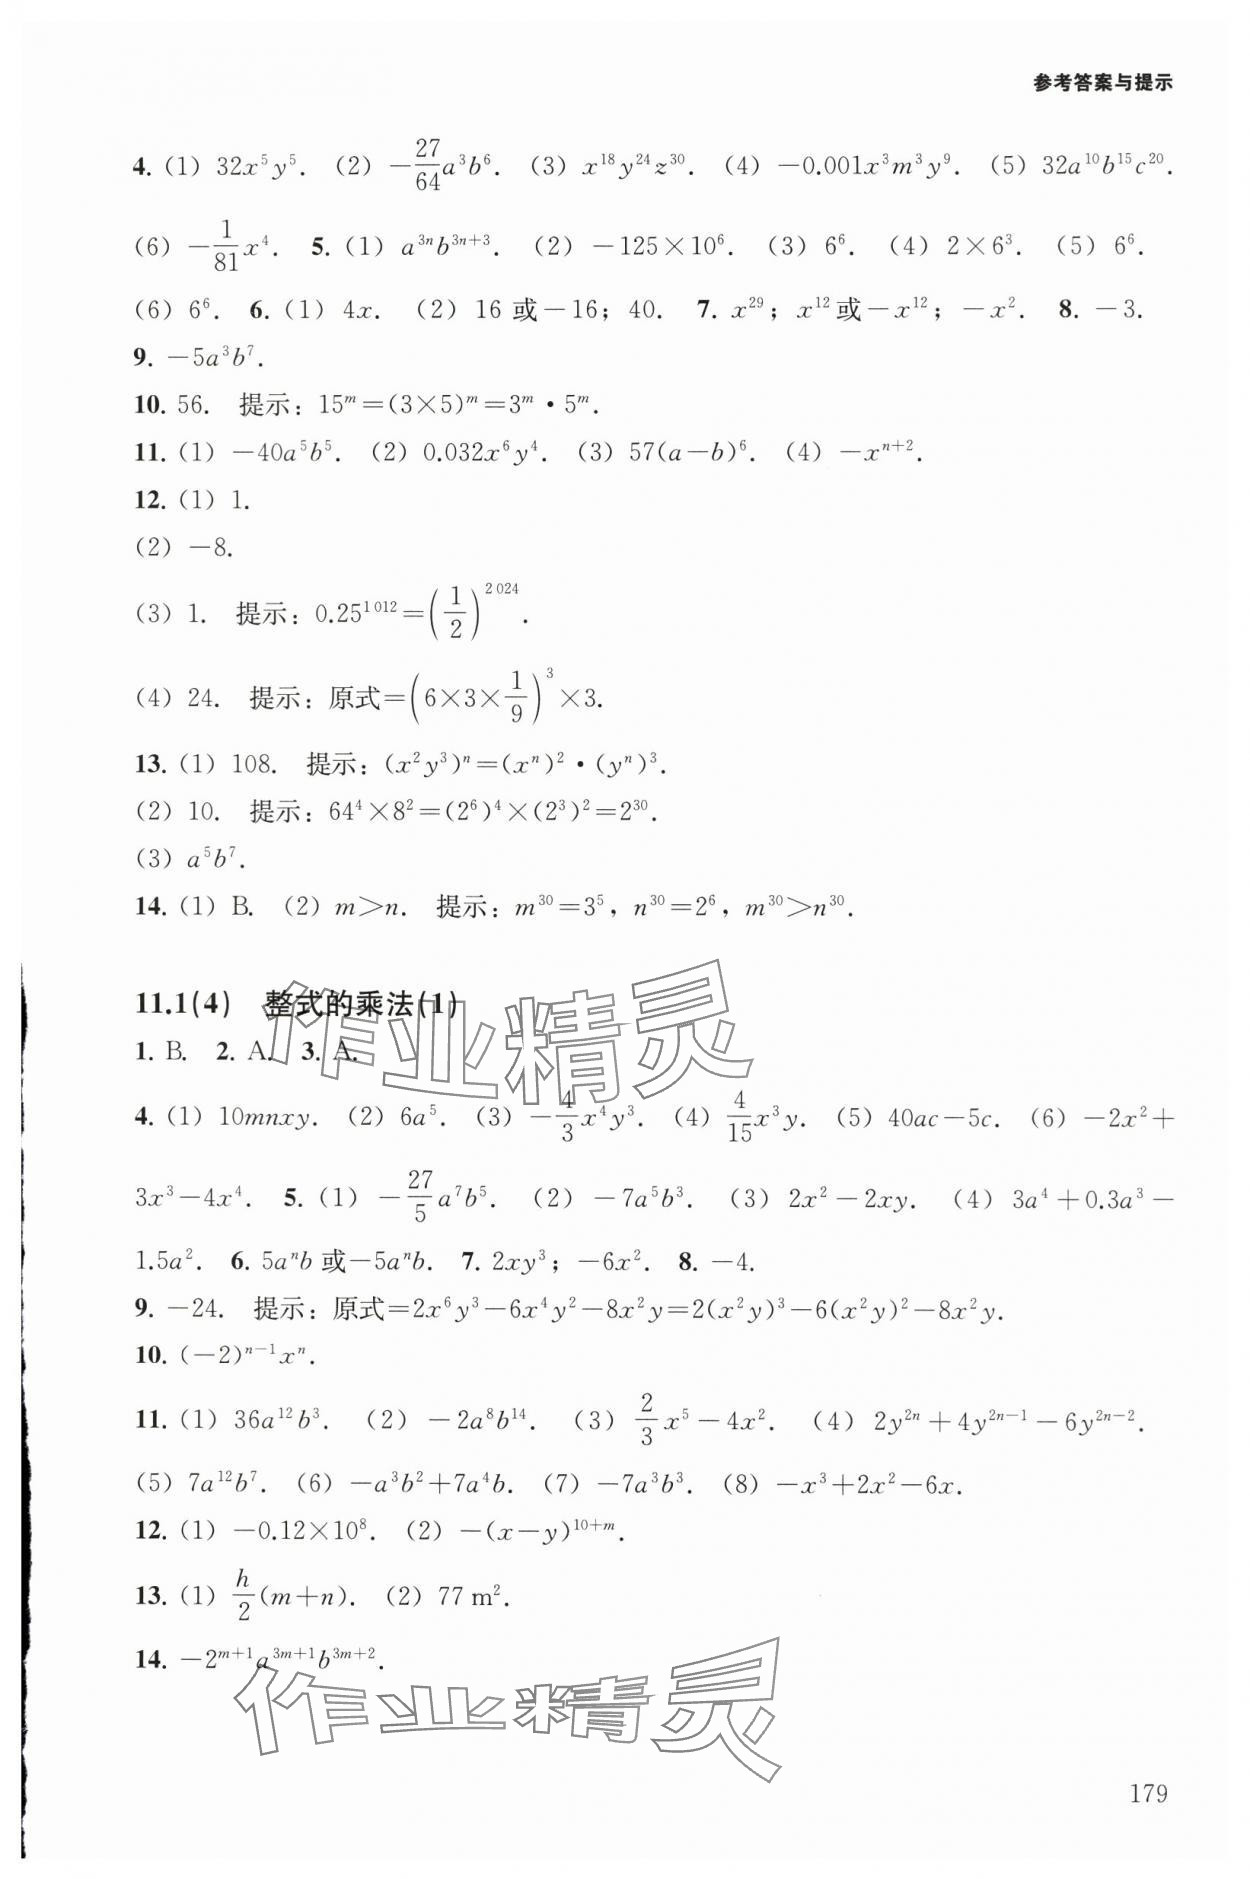 参考答案与提示
4. (1) 32x⁵y⁵. (2) −27/64a³b⁶. (3) x¹⁸y²⁴z³⁰. (4) −0.001x³m³y⁹. (5) 32a¹⁰b¹⁵c²⁰.
(6) −1/81x⁴. 5. (1) a³ⁿb³ⁿ⁺³. (2) −125×10⁶. (3) 6⁶. (4) 2×6³. (5) 6⁶.
(6) 6⁶. 6. (1) 4x. (2) 16 或−16; 40. 7. x²⁹; x¹²或−x¹²; −x². 8. −3.
9. −5a³b⁷.
10. 56. 提示: 15ᵐ=(3×5)ᵐ=3ᵐ·5ᵐ.
11. (1) −40a⁵b⁵. (2) 0.032x⁶y⁴. (3) 57(a−b)⁶. (4) −xⁿ⁺².
12. (1) 1.
(2) −8.
(3) 1. 提示: 0.25¹⁰¹²=(1/2)²⁰²⁴.
(4) 24. 提示: 原式=(6×3×1/9)³×3.
13. (1) 108. 提示: (x²y³)ⁿ=(xⁿ)²·(yⁿ)³.
(2) 10. 提示: 64⁴×8²=(2⁶)⁴×(2³)²=2³⁰.
(3) a⁵b⁷.
14. (1) B. (2) m>n. 提示: m³⁰=3⁵, n³⁰=2⁶, m³⁰>n³⁰.
11.1(4) 整式的乘法(1)
1. B. 2. A. 3. A.
作业精灵
4. (1) 10mnxy. (2) 6a⁵. (3) −4/3x⁴y³. (4) 4/15x³y. (5) 40ac−5c. (6) −2x²+
3x³−4x⁴. 5. (1) −27/5a⁷b⁵. (2) −7a⁵b³. (3) 2x²−2xy. (4) 3a⁴+0.3a³−
1.5a². 6. 5aⁿb 或−5aⁿb. 7. 2xy³; −6x². 8. −4.
9. −24. 提示: 原式=2x⁶y³−6x⁴y²−8x²y=2(x²y)³−6(x²y)²−8x²y.
10. (−2)ⁿ⁻¹xⁿ.
11. (1) 36a¹²b³. (2) −2a⁸b¹⁴. (3) 2/3x⁵−4x². (4) 2y²ⁿ+4y²ⁿ⁻¹−6y²ⁿ⁻².
(5) 7a¹²b⁷. (6) −a³b²+7a⁴b. (7) −7a³b³. (8) −x³+2x²−6x.
12. (1) −0.12×10⁸. (2) −(x−y)¹⁰⁺ᵐ.
13. (1) h/2(m+n). (2) 77 m².
14. −2ᵐ⁺¹a³ᵐ⁺¹b³ᵐ⁺².
作业精灵
179